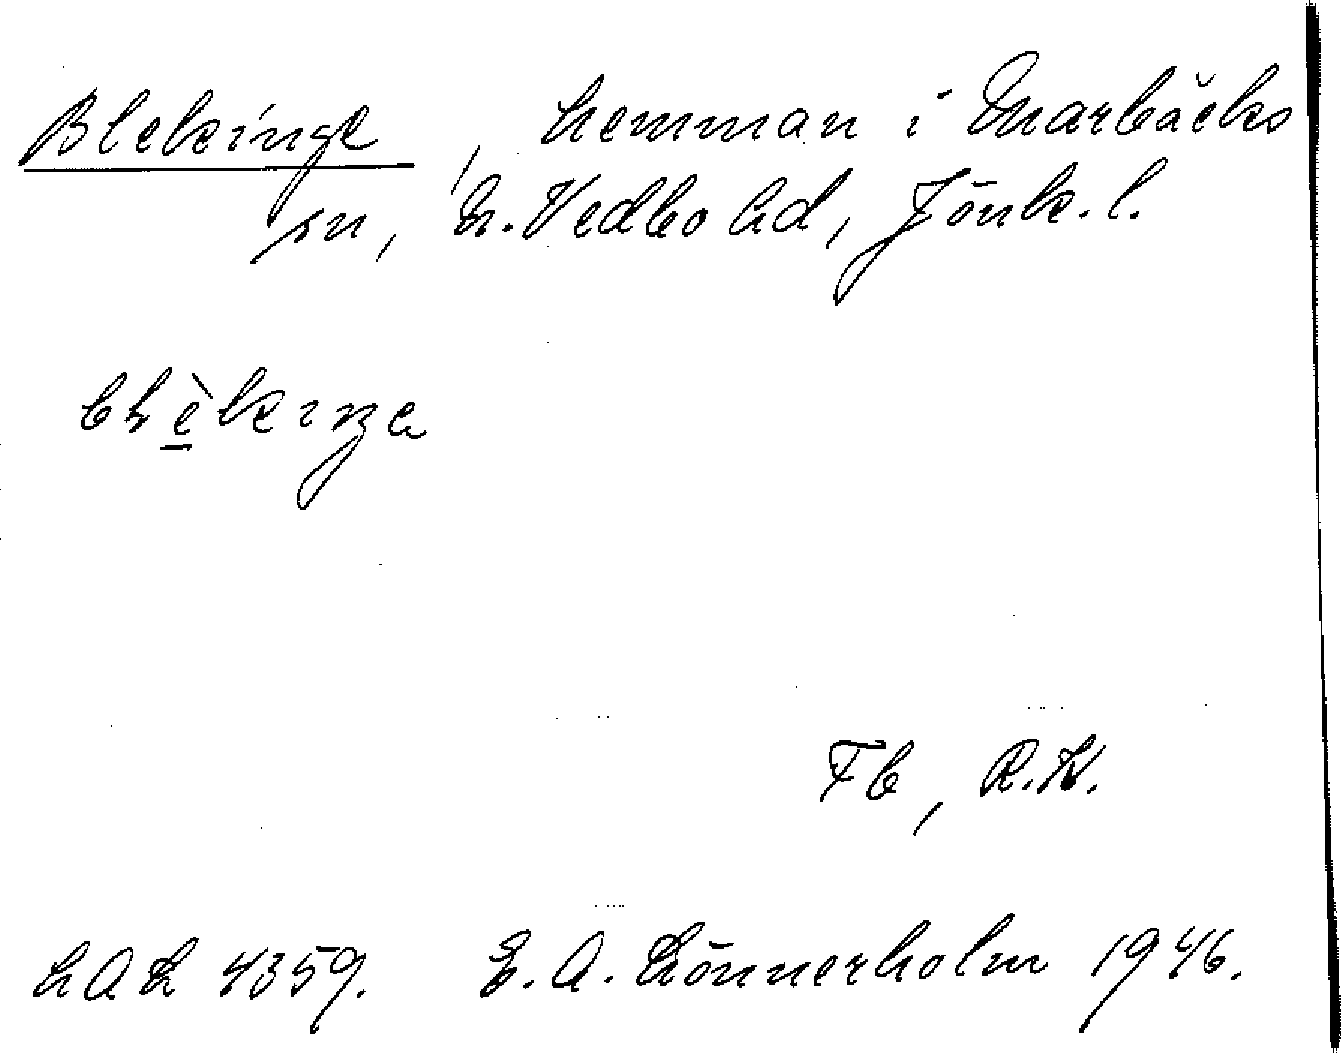 Blekinge, hemman i Marbäcks
sn, N. Vedbo hd, Jönk. l.
Fb, R.K.
LAL 4359. E. A. Lönnerholm 1946.